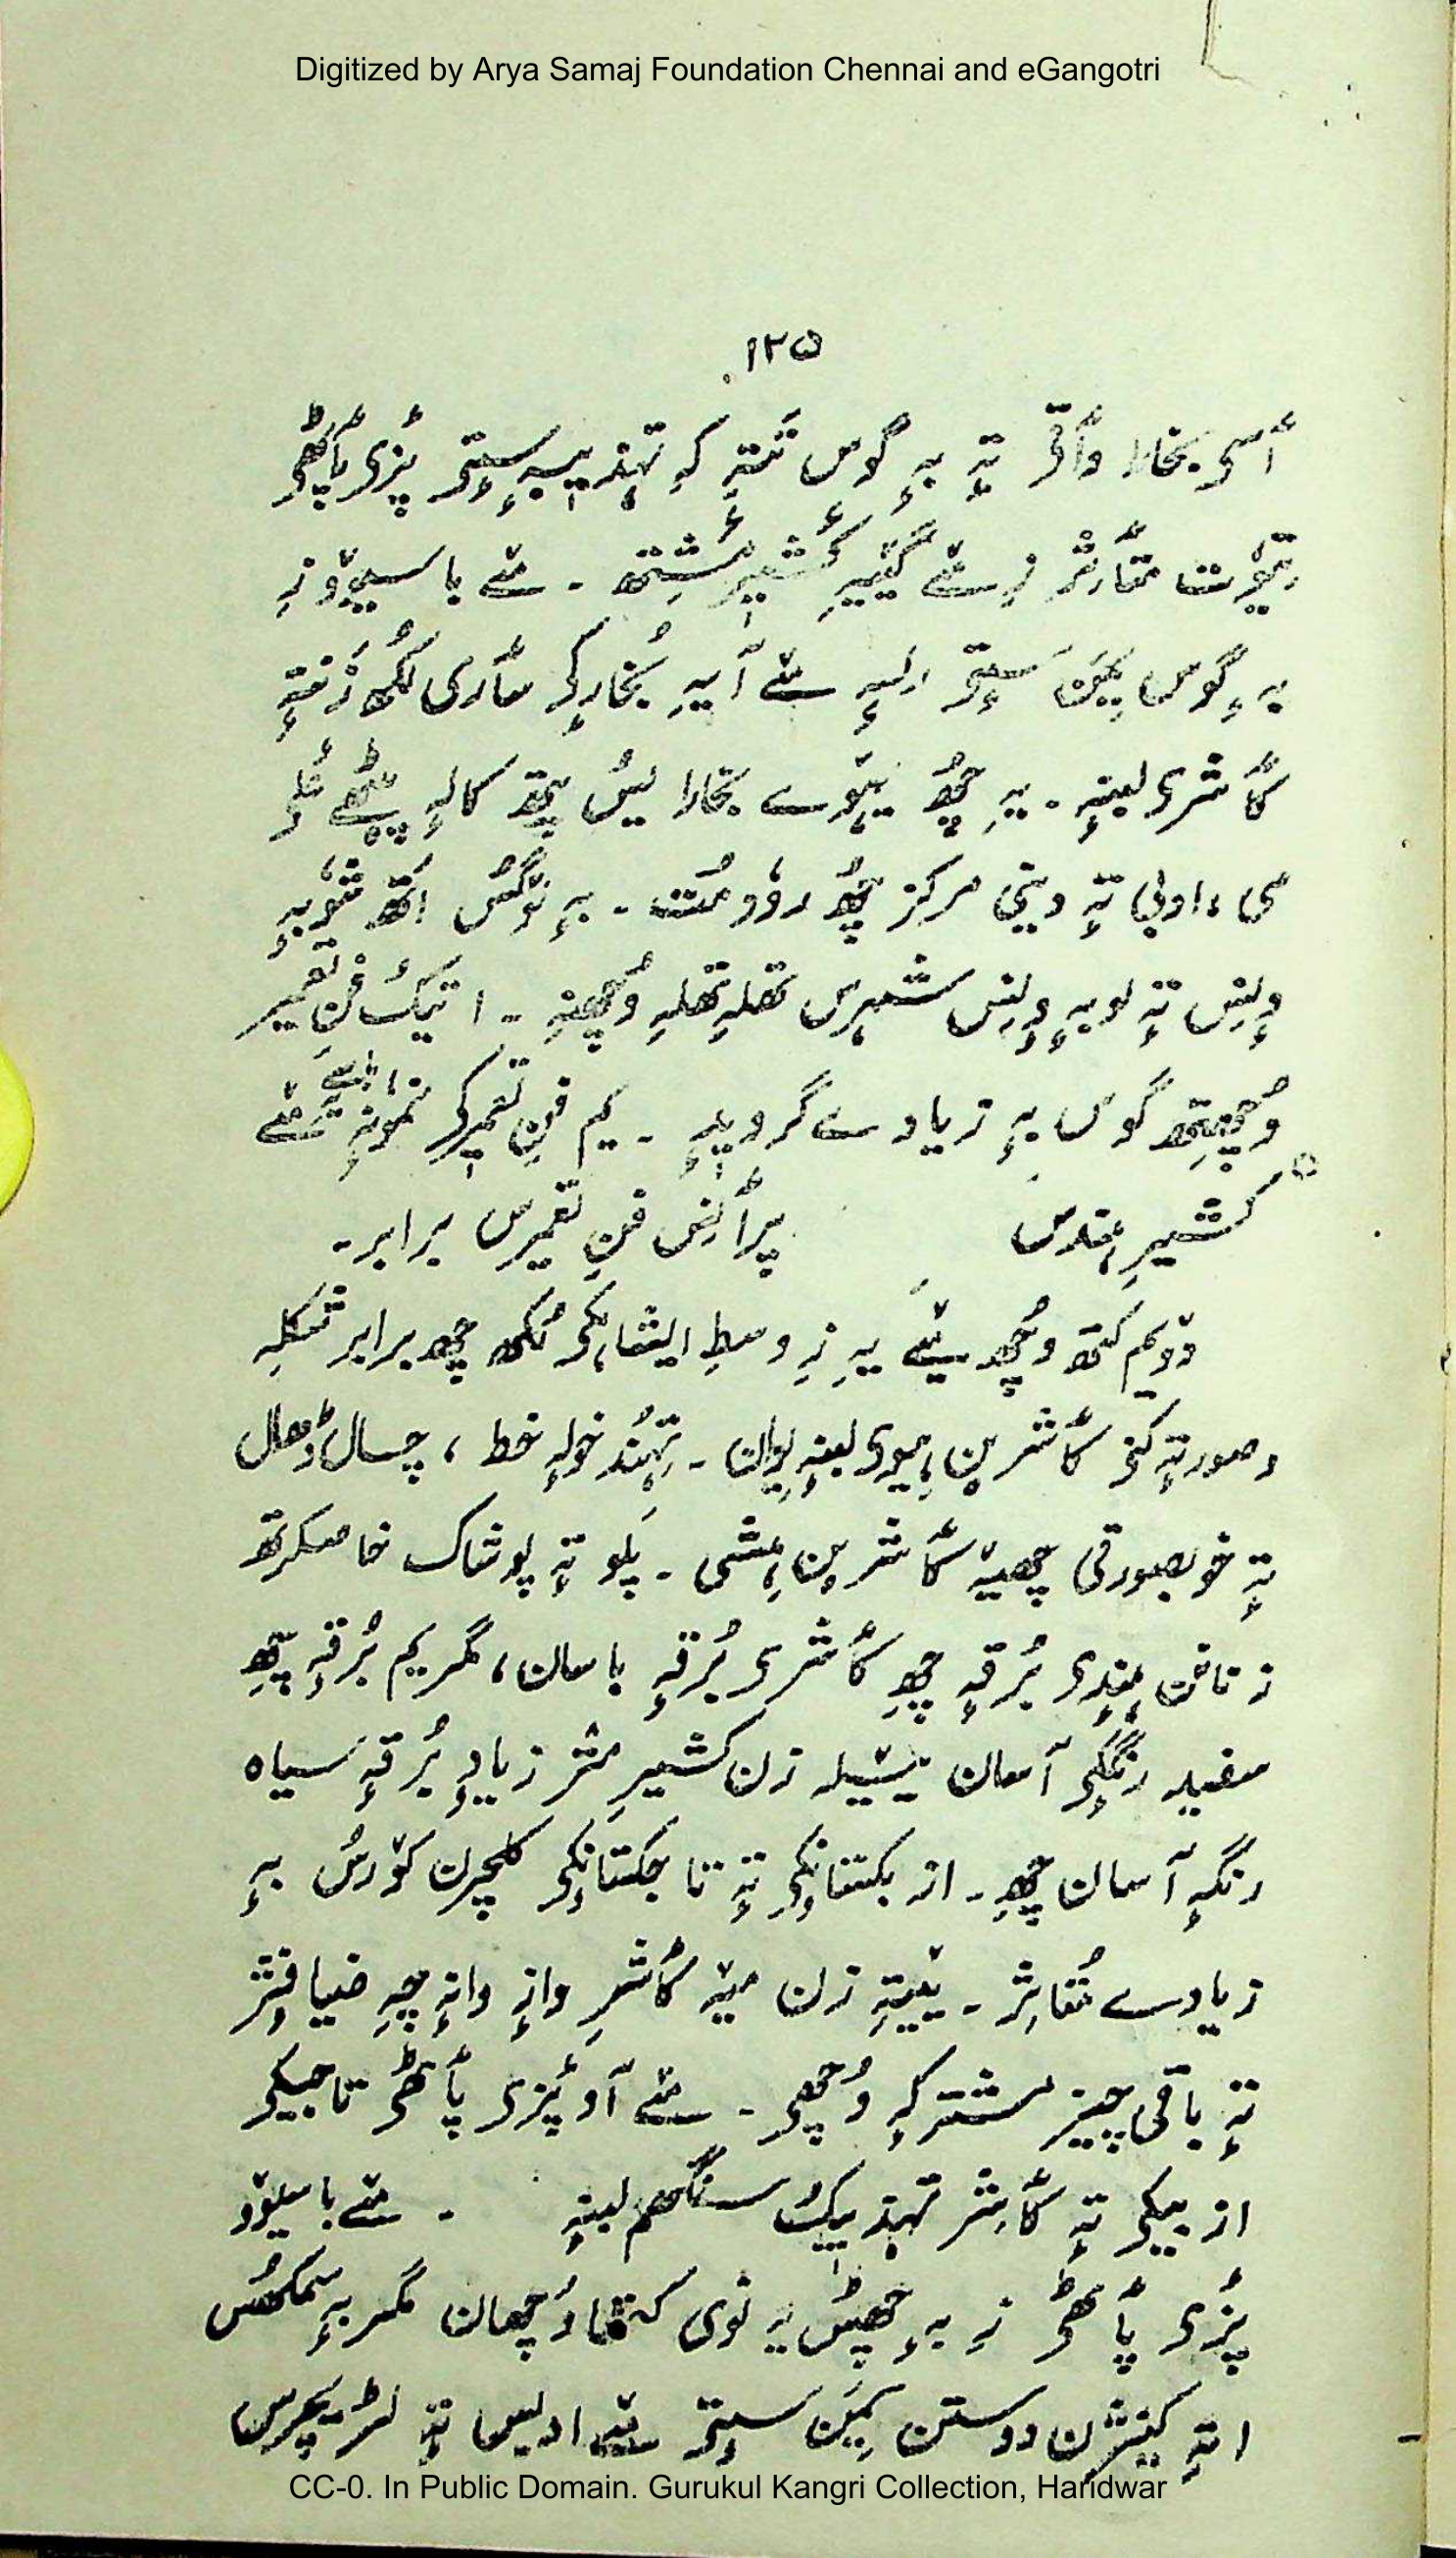 Digitized by Arya Samaj Foundation Chennai and eGangotri
۱۲۵
أسۍ بخارا وأتۍ تہٕ بہٕ گوس تتہِ کہِ تہذیبہٕ سٟتۍ پٔزۍ پٲٹھۍ
تیوٗت متٲثر زِ مےٚ گٔیہِ کٔشیٖر مٔشتھ ۔ مےٚ باسیوٚو زِ
بہٕ گوس یمن سٟتۍ مےٚ آیہِ بُخارکۍ سٲری لُکھ زنتہٕ
کٲشرۍ لبنہٕ ۔ یہِ چھُ تیوٗے بخارا یُس پٮ۪تھ کالہٕ پیٹھے علمی
ادبی تہٕ دینی مرکز چھُ رووٗدمُت ۔ بہٕ نوٚگُس اتھ شوٗبہٕ
وٕنِس تہٕ لوبہٕ وٕنِس شہرس تھلہِ تھلہِ وُچھنہِ ۔ اتیُک فنِ تعمیر
وُچھتھ گوس بہٕ زیادے گرویدٕ ۔ یم فنِ تعمیرکۍ نموٗنہٕ مےٚ
کشیٖر ہندس پرٲنِس فنِ تعمیرس برابر ۔
دوٚیم کتھ وُچھ مےٚ یہِ زِ وسطِ ایشیاہکۍ لُکھ چھِ برابر شکلہِ
وصورتہٕ کنۍ کٲشرٮ۪ن ہِوۍ لبنہٕ یوان ۔ تہُند خولہٕ خط ، چال ڈھال
تہٕ خوبصورتی چھیہٚ کٲشرٮ۪ن ہِشی ۔ پلو تہٕ پوشاک خاصکرتھ
زنانن ہٕندۍ بُرقہٕ چھِ کٲشرۍ بُرقہٕ باسان ، مگر یم بُرقہٕ چھِ
سفید رنگکۍ آسان ییٚیلہِ زن کشیٖر منز زیادٕ بُرقہٕ سیاہ
رنگہٕ آسان چھِ ۔ ازبکستانکۍ تہٕ تاجکستانکۍ کلچرن کوٚرُس بہٕ
زیادے مُتاثر ۔ ییٚتہِ زن میٚہ کٲشرِ وازٕ وانہٕ چہِ ضیافژ
تہٕ باقی چیز مشترکہٕ وُچھۍ ۔ مےٚ آو پٔزۍ پٲٹھۍ تاجیکۍ
ازبیکۍ تہٕ کٲشر تہذیبُک سنگھم لبنہٕ ۔ مےٚ باسیوٚو
پٔزۍ پٲٹھۍ زِ بہٕ چھُس یہِ نوٚی کنتھا وُچھان مگر بہٕ سمکھُس
اتہِ کینٛژن دوستن یمن سٟتۍ مےٚ ادبس تہٕ لٹریچرس
CC-0. In Public Domain. Gurukul Kangri Collection, Haridwar